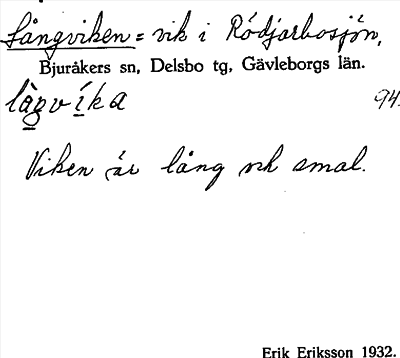 Långviken = vik i Rödjarbosjön,
Bjuråkers sn, Delsbo tg, Gävleborgs län.
lågvíka 94.
Viken är lång och smal.
Erik Eriksson 1932.